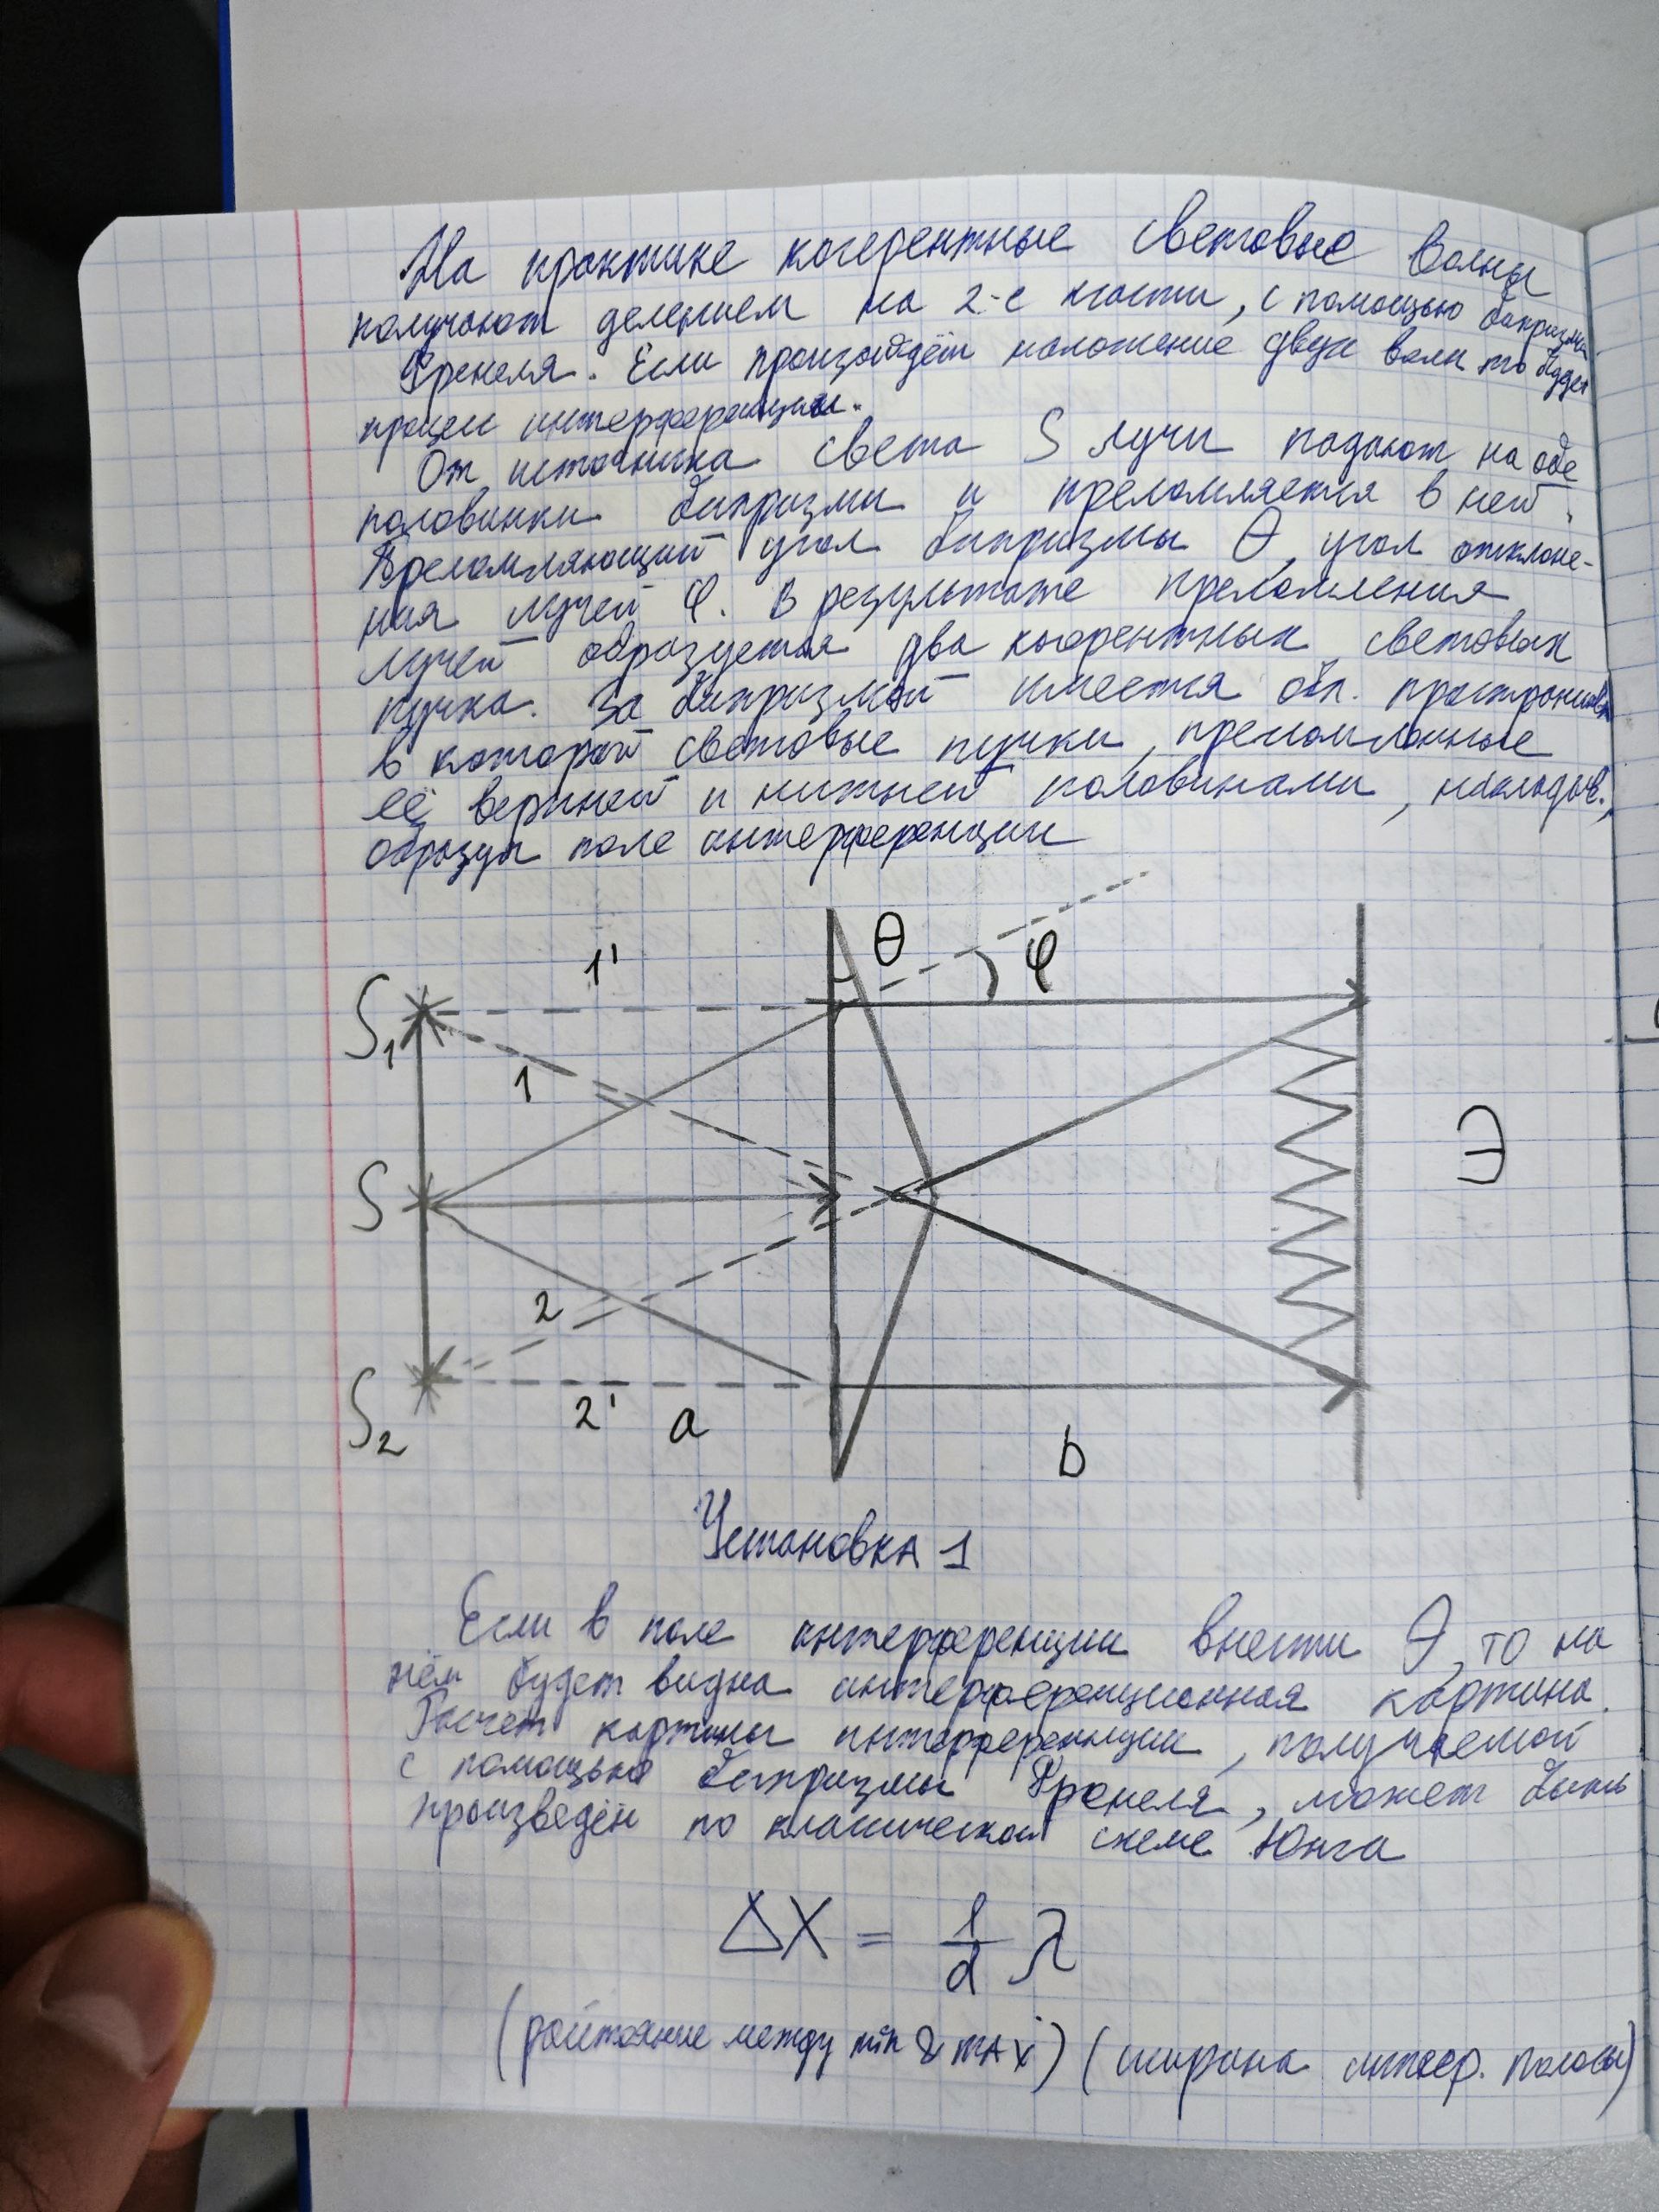 На практике когерентные световые волны
получают делением на 2-е части, с помощью бипризмы
Френеля. Если произойдёт наложение двух волн то будет
процесс интерференции.
От источника света S лучи падают на обе
половинки бипризмы и преломляется в ней.
Преломляющий угол бипризмы θ, угол отклоне-
ния лучей φ. В результате преломления
лучей образуется два когерентных световых
пучка. За бипризмой имеется обл. пространства
в которой световые пучки, преломлённые
её верхней и нижней половинами, накладыв.,
образуя поле интерференции
θ
φ
1'
S₁
1
S
Э
2
S₂
2'
a
b
Установка 1
Если в поле интерференции внести Э, то на
нём будет видна интерференционная картина.
Расчет картины интерференции, получаемой
с помощью бипризмы Френеля, может быть
произведён по классической схеме Юнга
ΔX = l/d λ
(растояние между min & max) (ширина интер. полосы)